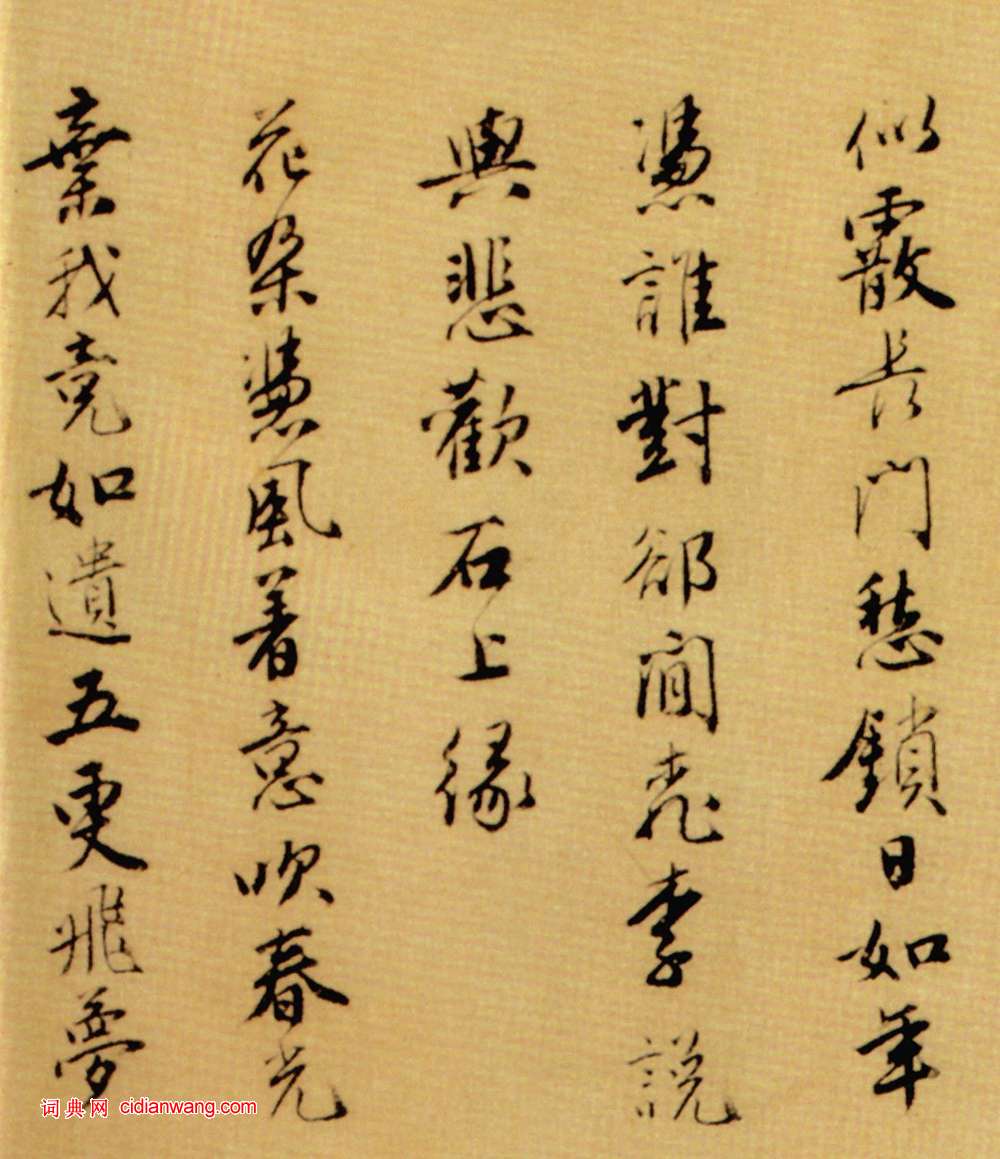 似霰長門愁鎖日如年
憑誰對郤閒桃李說
與悲歡石上緣
花朶憑風着意吹春光
棄我竟如遺五更飛夢
词典网 cidianwang.com